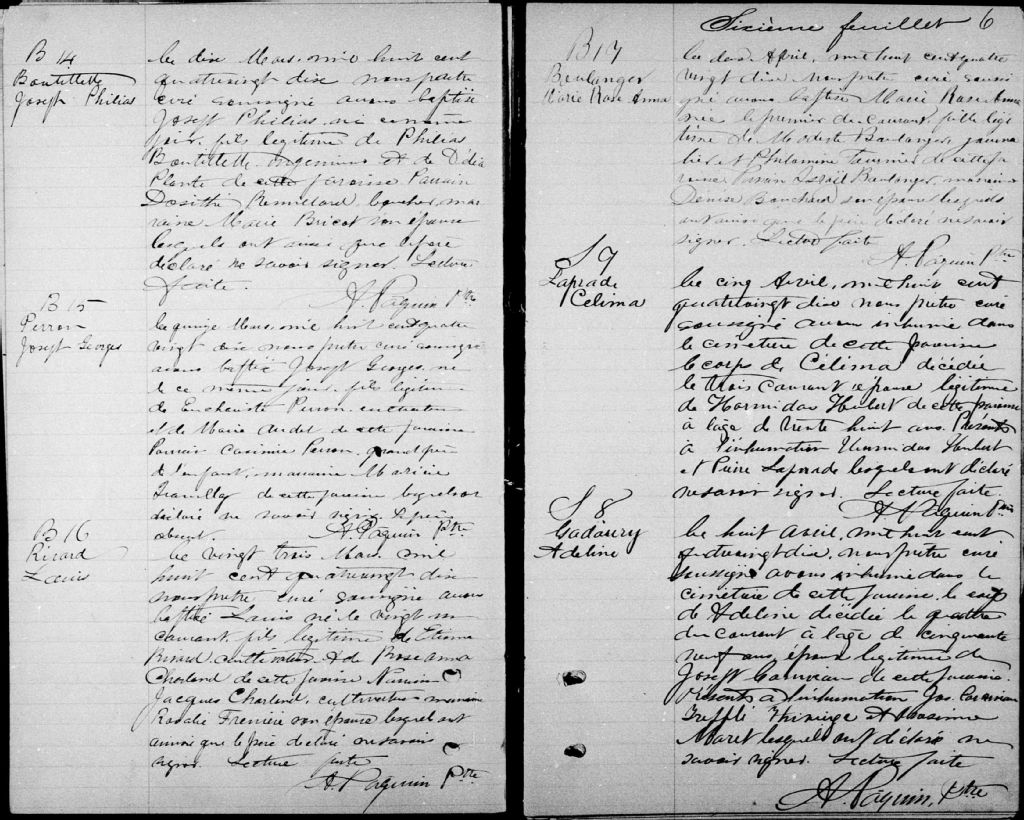 B 14
Boutillette
Joseph Philias
Le dix Mars, mil huit cent
quatrevingt dix nous prêtre
curé soussigné avons baptisé
Joseph Philias, né ce même
jour, fils légitime de Philias
Boutillette et de Délia
Plante de cette paroisse Parrain
Dosithé Remillard, boucher, mar
raine Marie Bricot son épouse
lesquels ont ainsi que le père
déclaré ne savoir signer. Lecture
faite.
A. Paquin Ptre
B 15
Perron
Joseph Georges
Le quinze Mars, mil huit cent quatre
vingt dix nous prêtre curé soussigné
avons baptisé Joseph Georges, né
de ce même jour, fils légitime
de Perron,
et de Marie Audet de cette paroisse
Parrain Casimir Perron, grand père
de l'enfant, marraine
de cette paroisse lesquels ont
déclaré ne savoir signer. Le père
absent. A. Paquin Ptre
B 16
Ricard
Louis
Le vingt trois Mars mil
huit cent quatrevingt dix
nous prêtre curé soussigné avons
baptisé Louis né le vingt un
courant, fils légitime de Etienne
Ricard, cultivateur, et de Rose Anna
Charland de cette paroisse
Jacques Charland, cultivateur, marraine
Rosalie Frenière son épouse lesquels ont
ainsi que le père déclaré ne savoir
signer. Lecture faite
A. Paquin Ptre
Sixième feuillet 6
B 17
Boulanger
Marie Rose Anna
Le deux Avril, mil huit cent quatre
vingt dix nous prêtre curé soussi
gné avons baptisé Marie Rose Anna
née le premier du courant, fille légi
time de Modeste Boulanger, journa
lier et Philomène de cette pa
roisse Parrain Israël Boulanger, marraine
Denise Bouchard son épouse lesquels
ont ainsi que le père déclaré ne savoir
signer. Lecture faite
A. Paquin Ptre
S 7
Laprade
Célima
Le cinq Avril, mil huit cent
quatrevingt dix nous prêtre curé
soussigné avons inhumé dans
le cimetière de cette paroisse
le corps de Célima décédée
le trois courant épouse légitime
de Hormidas Hubert de cette paroisse
à l'age de trente huit ans. Présents
à l'inhumation Hormidas Hubert
et Pierre Laprade lesquels ont déclaré
ne savoir signer. Lecture faite.
A. Paquin Ptre
S 8
Gadoury
Adeline
Le huit Avril, mil huit cent
quatrevingt dix, nous prêtre curé
soussigné avons inhumé dans le
cimetière de cette paroisse, le corps
de Adeline décédée le quatre
du courant à l'age de cinquante
neuf ans, épouse légitime de
Joseph de cette paroisse.
Présents à l'inhumation Jos.
Trefflé et Maxime
lesquels ont déclaré ne
savoir signer. Lecture faite
A. Paquin, Ptre